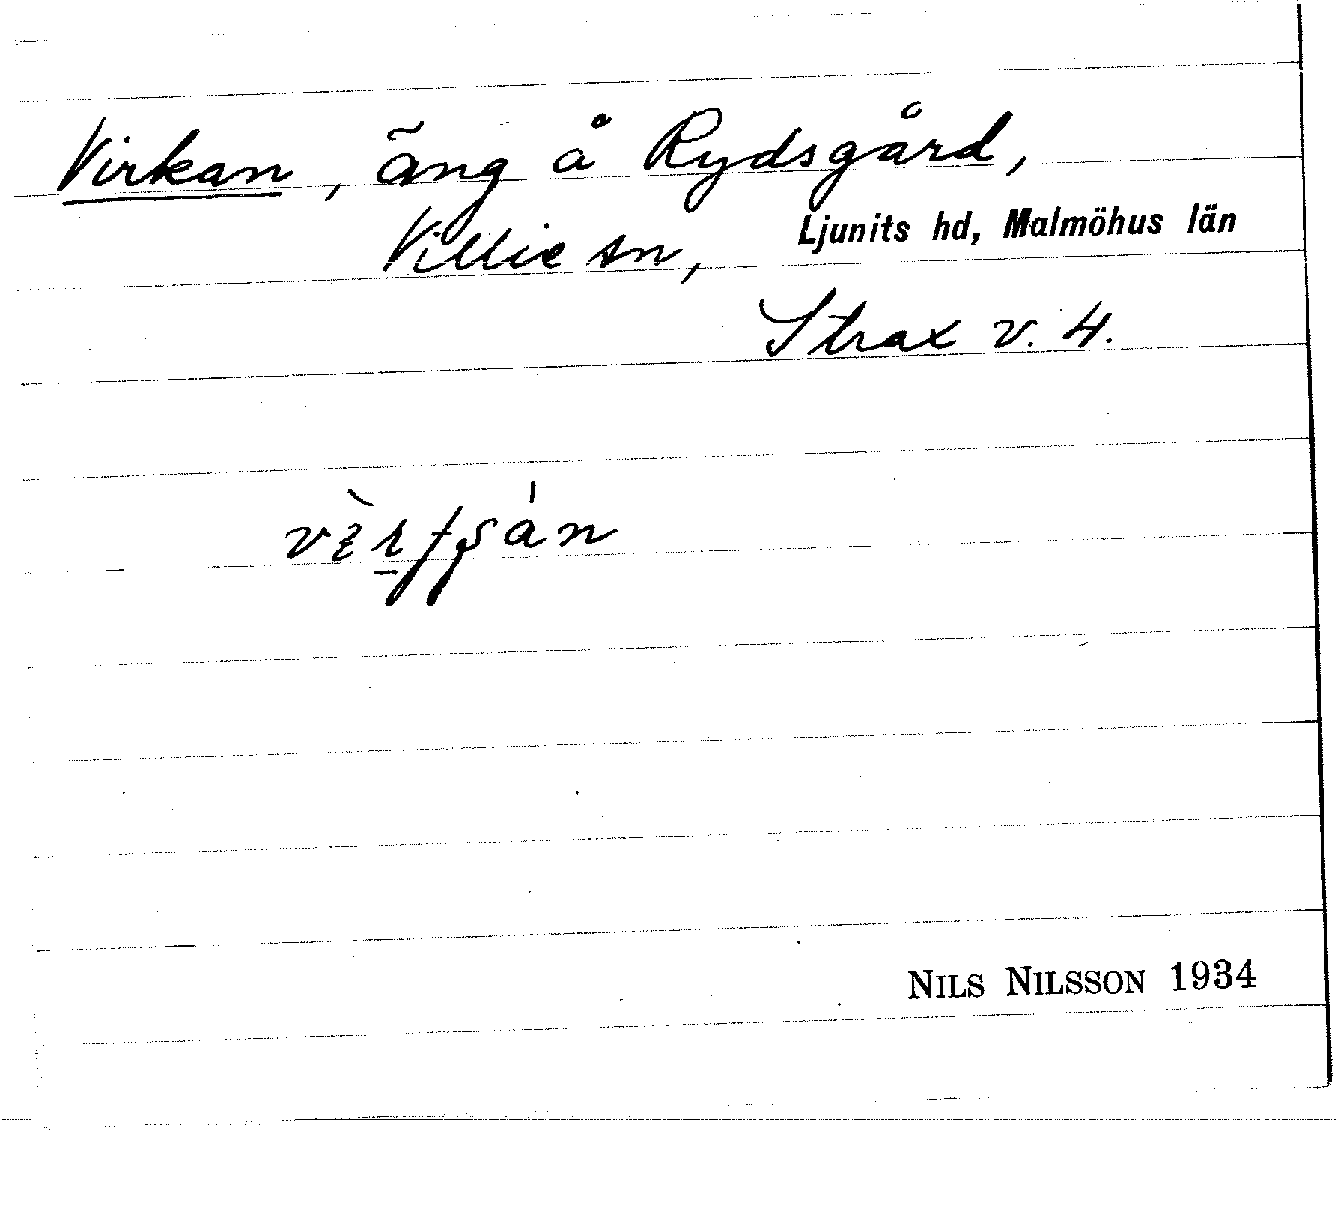 Virkan, äng å Rydsgård,
Villie sn, Ljunits hd, Malmöhus län
Strax v. H.
NILS NILSSON 1934